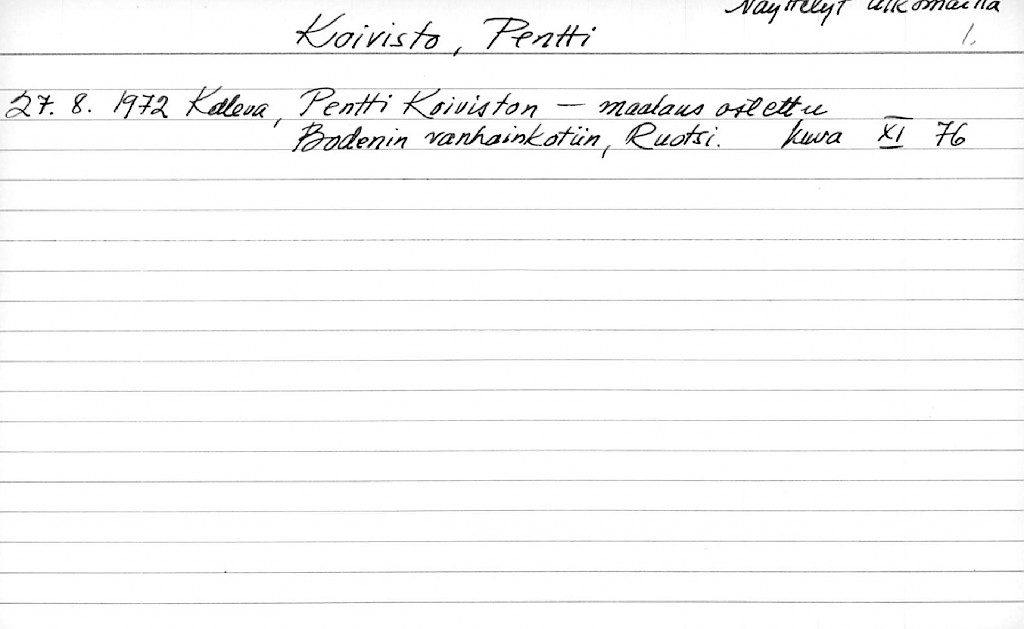 Näyttelyt ulkomailla
Koivisto, Pentti 1.
27. 8. 1972 Kaleva, Pentti Koiviston — maalaus ostettu
Bodenin vanhainkotiin, Ruotsi. kuva XI 76